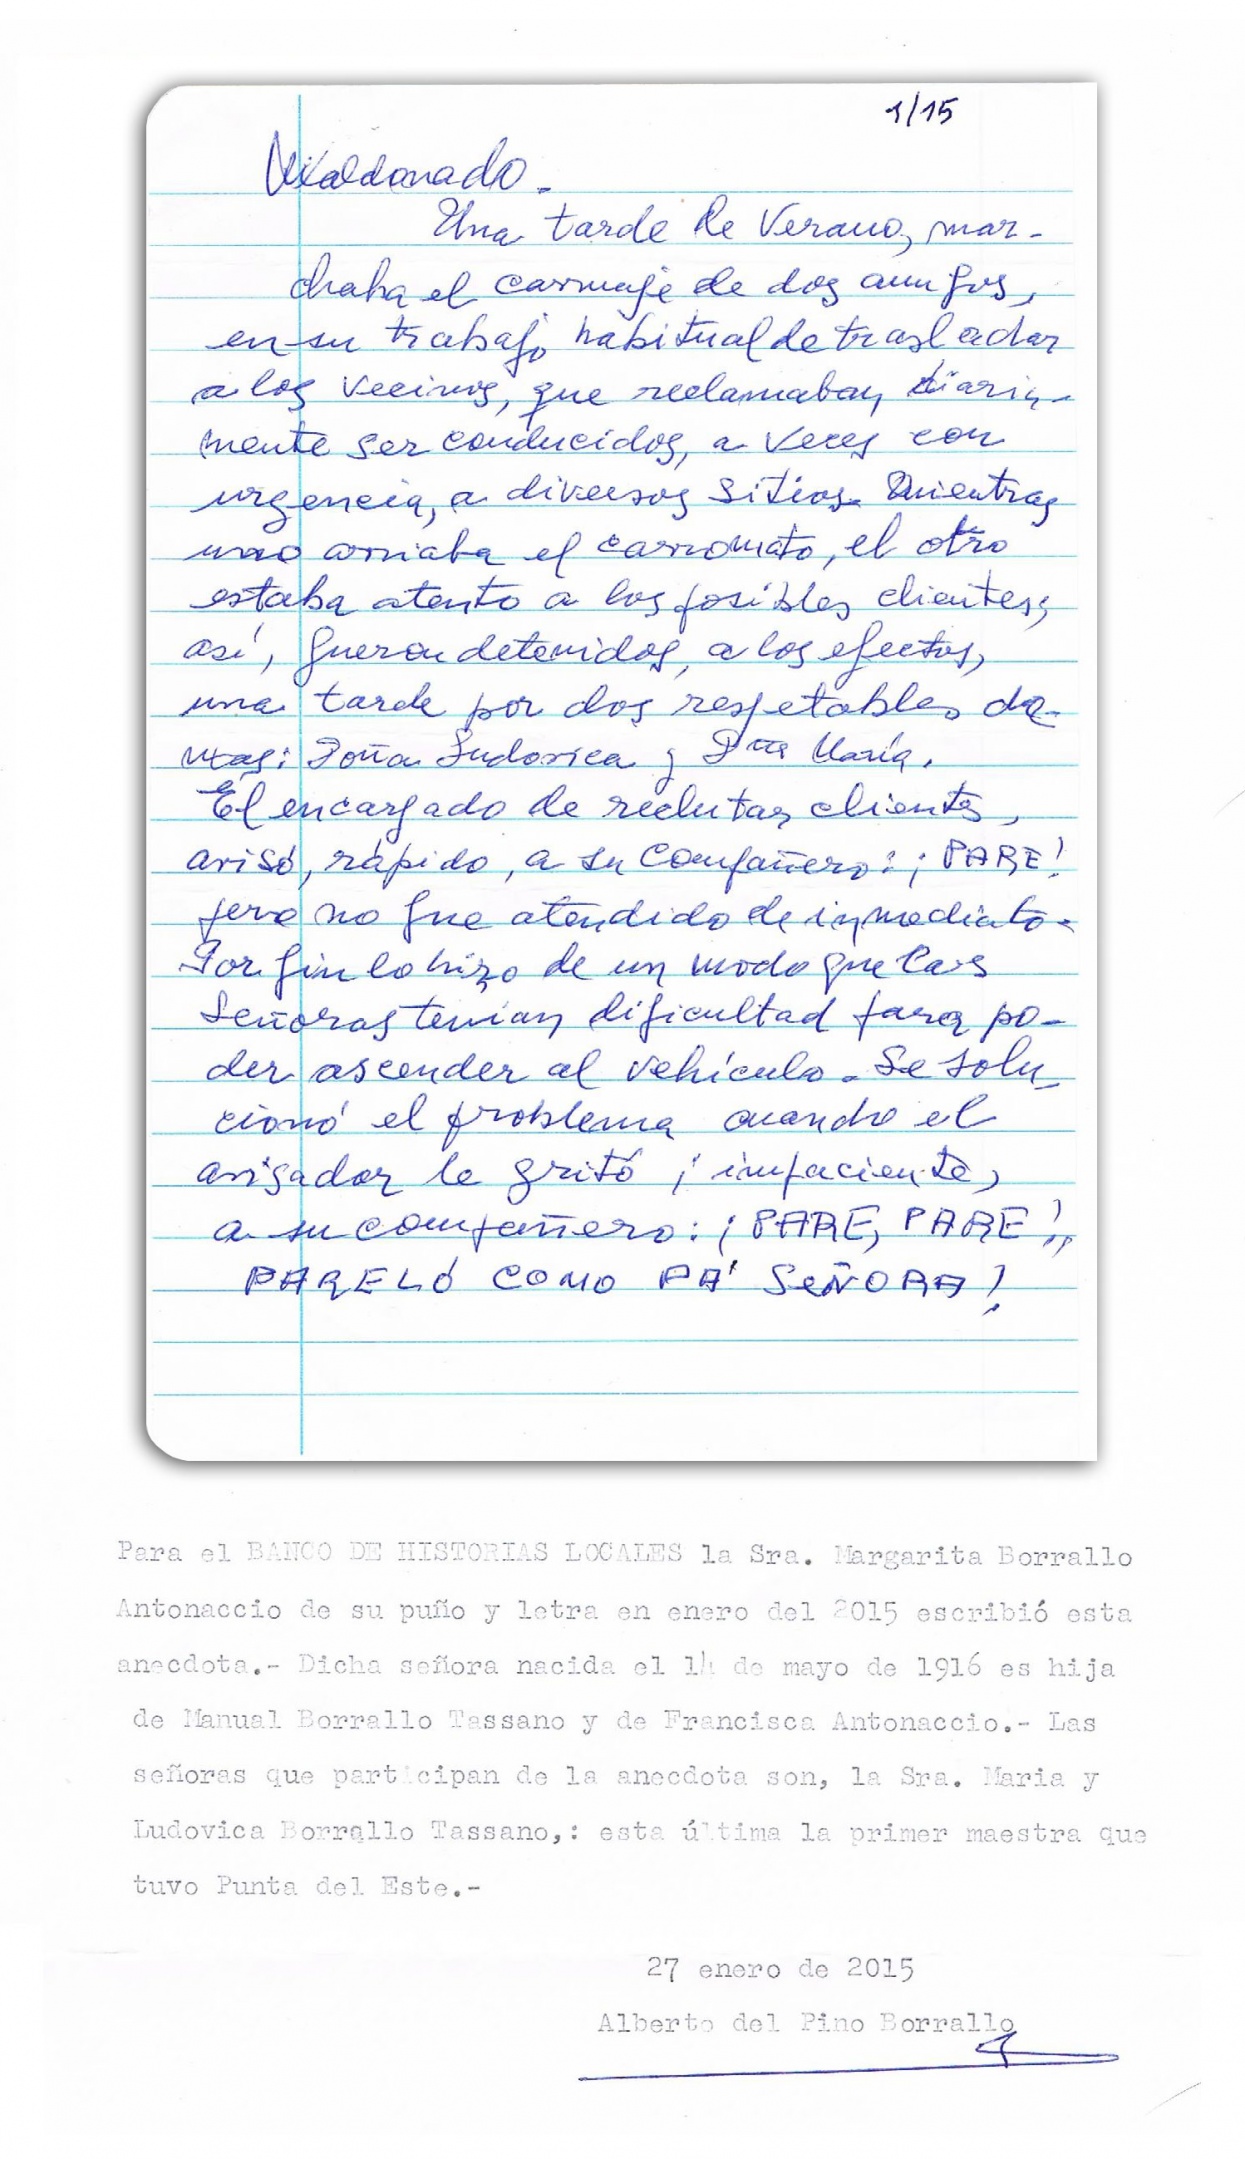 1/15
Maldonado.
Una tarde de Verano, mar-
chaba el carruaje de dos amigos,
en su trabajo habitual de trasladar
a los vecinos, que reclamaban diaria-
mente ser conducidos, a veces con
urgencia, a diversos sitios. Mientras
uno arriaba el carromato, el otro
estaba atento a los posibles clientes;
así, fueron detenidos, a los efectos,
una tarde por dos respetables da-
mas: Doña Ludovica y Dña María.
El encargado de reclutar clientes,
avisó, rápido, a su compañero: ¡PARE!
pero no fue atendido de inmediato.
Por fin lo hizo de un modo que las
Señoras tenían dificultad para po-
der ascender al vehículo. Se solu-
cionó el problema cuando el
avisador le gritó, impaciente,
a su compañero: ¡PARE, PARE!,,
PARELÓ COMO PA' SEÑORA!
Para el BANCO DE HISTORIAS LOCALES la Sra. Margarita Borrallo
Antonaccio de su puño y letra en enero del 2015 escribió esta
anecdota.- Dicha señora nacida el 14 de mayo de 1916 es hija
de Manual Borrallo Tassano y de Francisca Antonaccio.- Las
señoras que participan de la anecdota son, la Sra. Maria y
Ludovica Borrallo Tassano,: esta última la primer maestra que
tuvo Punta del Este.-
27 enero de 2015
Alberto del Pino Borrallo